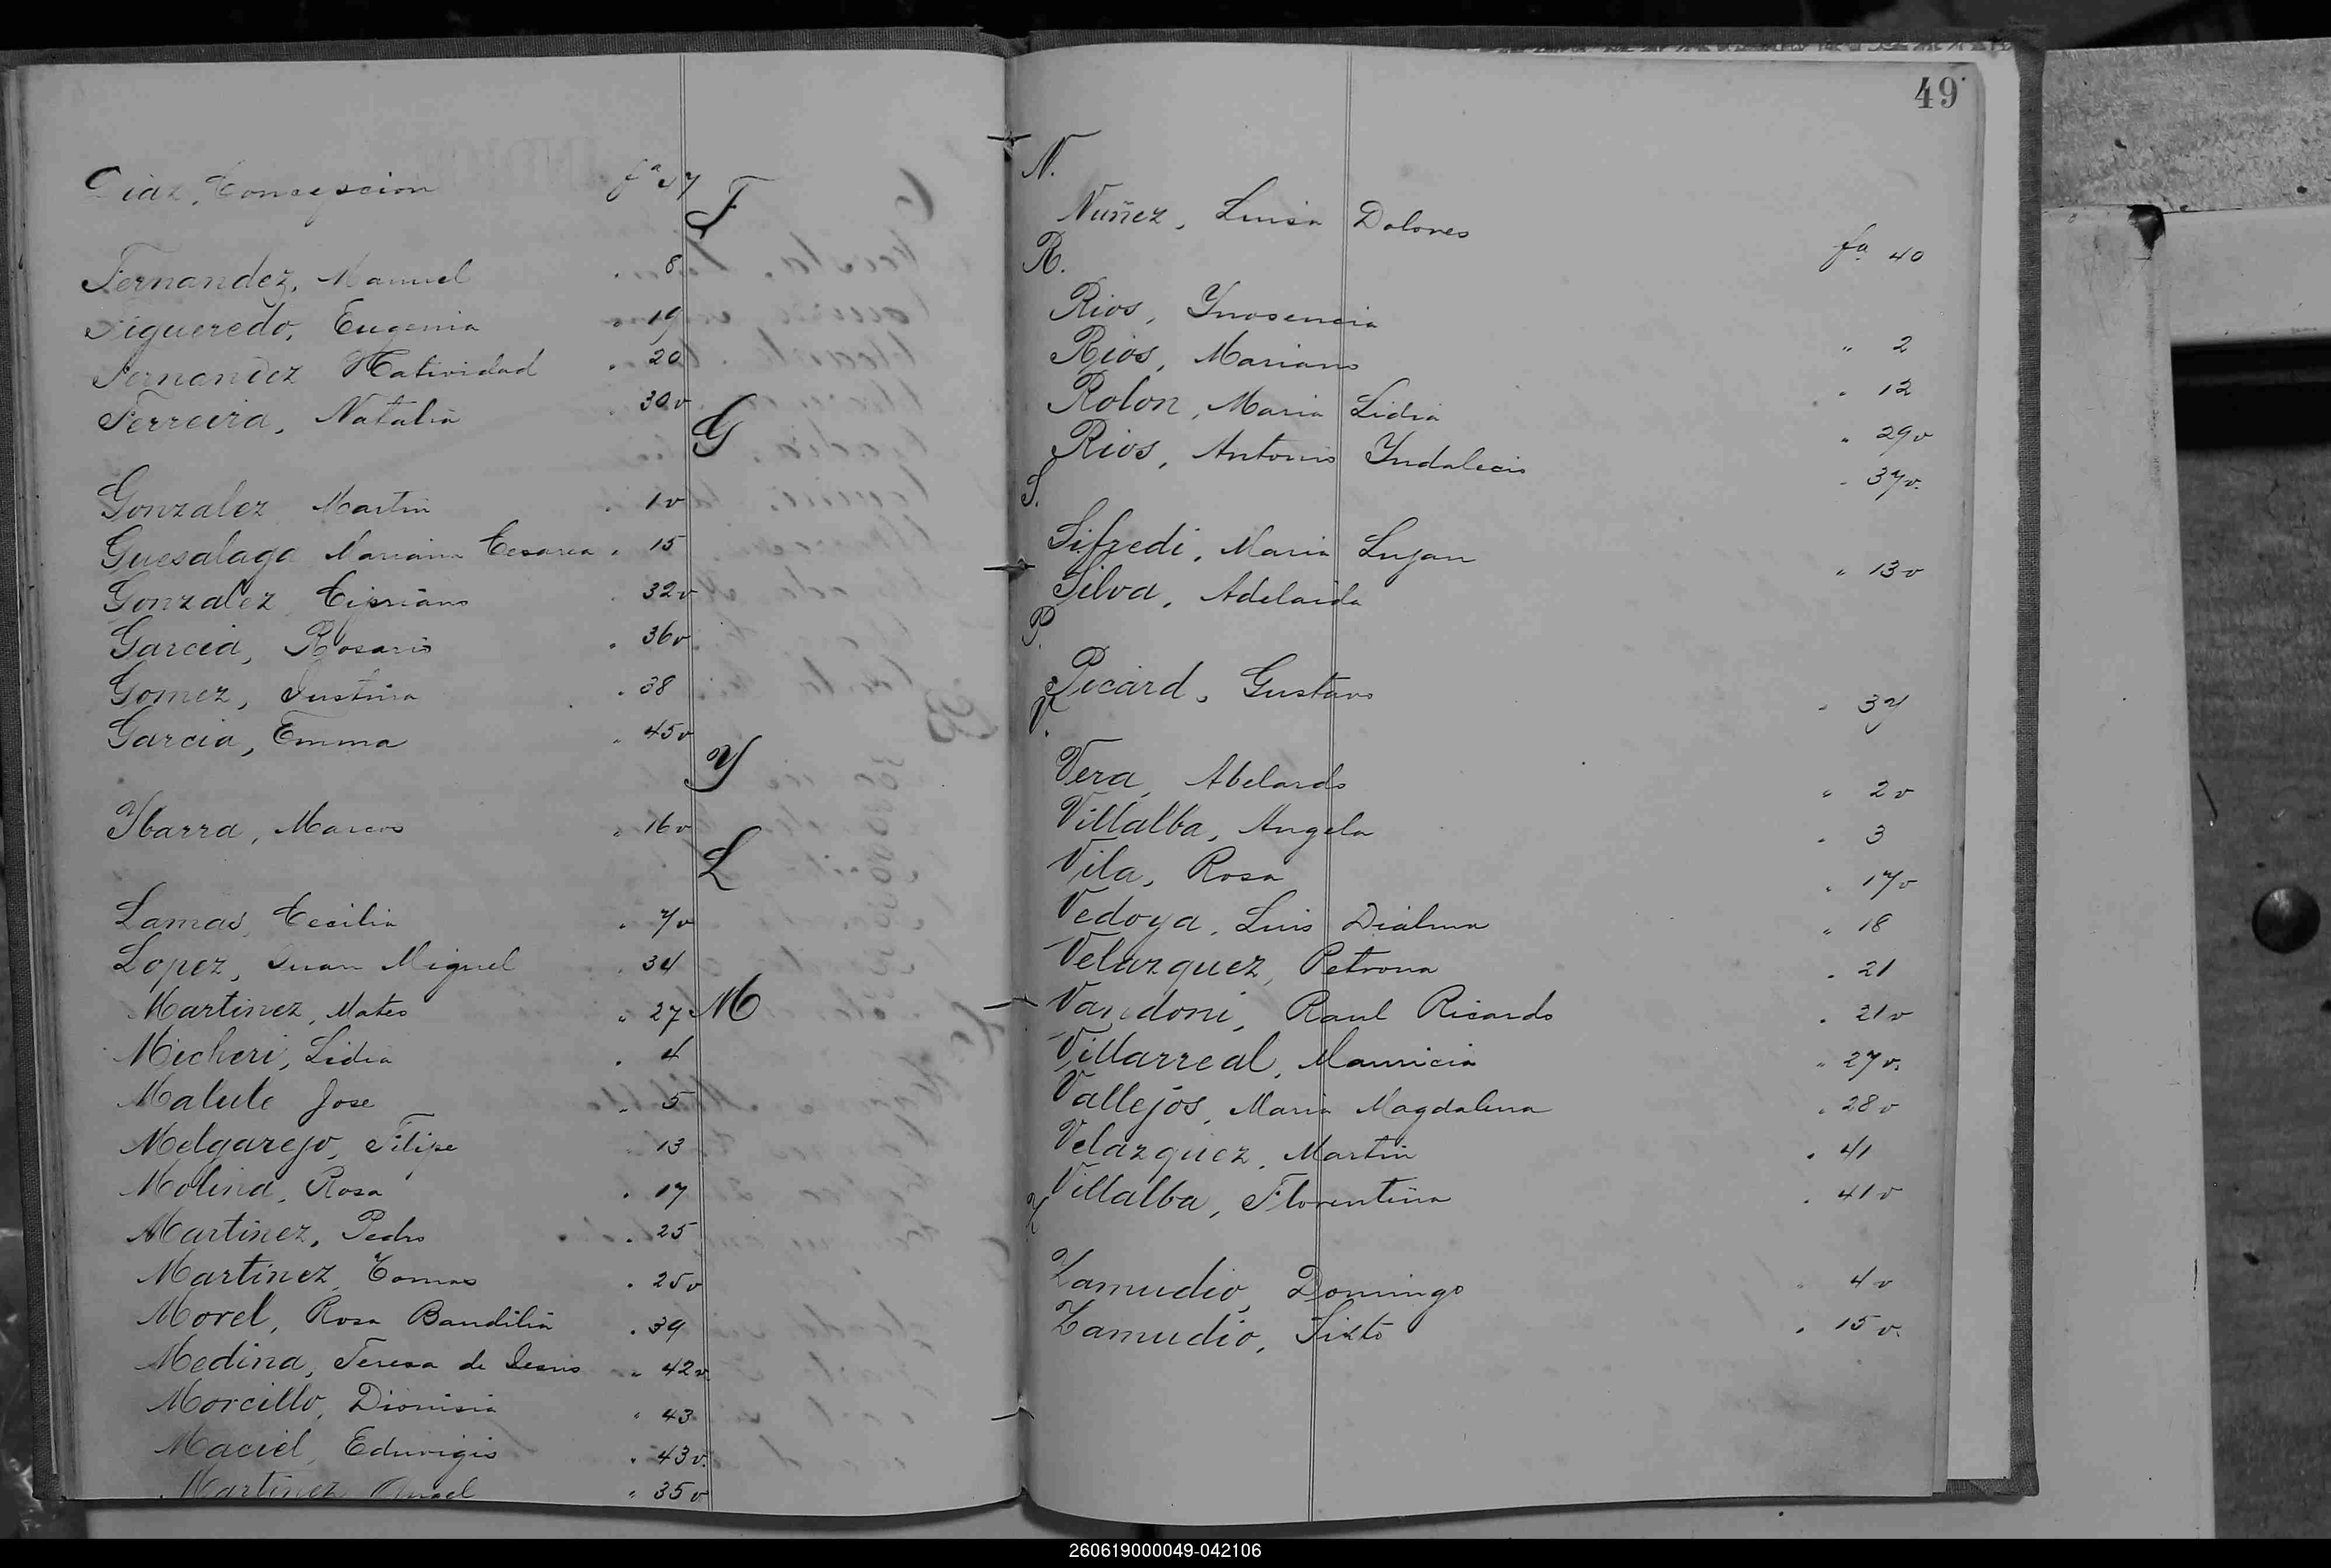 Diaz, Concepcion fª 47
F
Fernandez, Manuel " 8
Figueredo, Eugenia " 19
Fernandez Natividad " 20
Ferreira, Natalia " 30v
G
Gonzalez Martin " 1v
Guesalaga Mariana Cesarea " 15
Gonzalez Cipriano " 32v
Garcia, Rosario " 36v
Gomez, Justina " 38
Garcia, Emma " 45v
Y
Ybarra, Marcos " 16v
L
Lamas, Cecilia " 7v
Lopez, Juan Miguel " 34
M
Martinez, Mateo " 27
Micheri, Lidia " 4
Malule Jose " 5
Melgarejo, Filipe " 13
Molina, Rosa " 17
Martinez, Pedro " 25
Martinez, Tomas " 25v
Morel, Rosa Baudilia " 39
Medina, Teresa de Jesus " 42v.
Morcillo, Dionisia " 43
Maciel, Eduvigis " 43v.
Martinez Angel " 35v
49
N.
Nuñez, Luisa Dolores fª 40
R.
Rios, Ynosencia " 2
Rios, Mariano " 12
Rolon, Maria Lidia " 29v
Rios, Antonio Yndalecio " 37v.
S.
Sifredi, Maria Lujan " 13v
Silva, Adelaida
P.
Picard, Gustavo " 37
V.
Vera, Abelardo " 2v
Villalba, Angela " 3
Vila, Rosa " 17v
Vedoya, Luis Dialma " 18
Velazquez, Petrona " 21
Vandoni, Raul Ricardo " 21v
Villarreal, Mauricia " 27v.
Vallejos, Maria Magdalena " 28v
Velazquez, Martin " 41
Villalba, Florentina " 41v
Z
Zamudio, Domingo " 4v
Zamudio, Sixto " 15v.
260619000049-042106